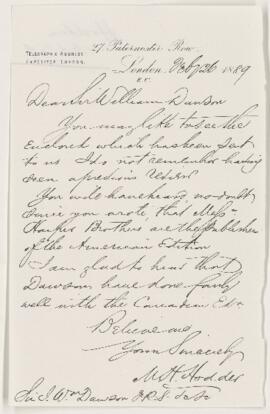 27 Paternoster Row,
TELEGRAPHIC ADDRESS
EXPOSITOR LONDON.
London, Feby 26 1889
E.C.
Dear Sir William Dawson
You may like to see the
Enclosed which has been sent
to us I do not remember having
seen a previous
You will have heard, no doubt
since you wrote, that Messrs
Harper Brothers are the publishers
of the American Edition
I am glad to hear that
Dawsons have done fairly
well with the Canadian Edn
Believe me
Yours Sincerely
M H Hodder
Sir J. Wm Dawson F.R.S.